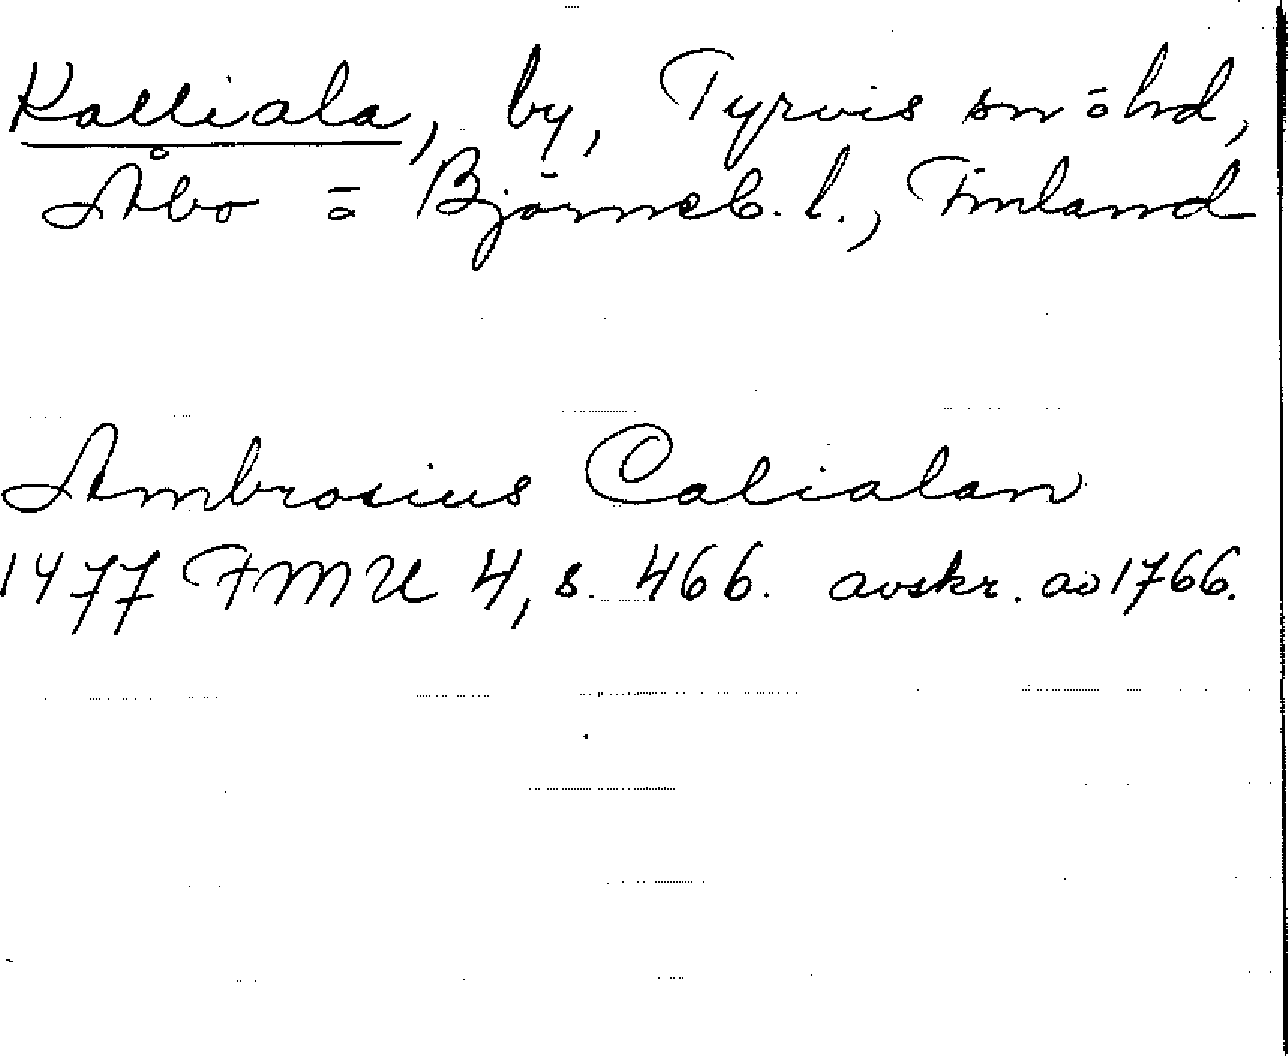 Kalliala, by, Tyrvis sn o hd,
Åbo o Björneb. l., Finland
Ambrosius Calialan
1477 FMU 4, s. 466. avskr. av 1766.